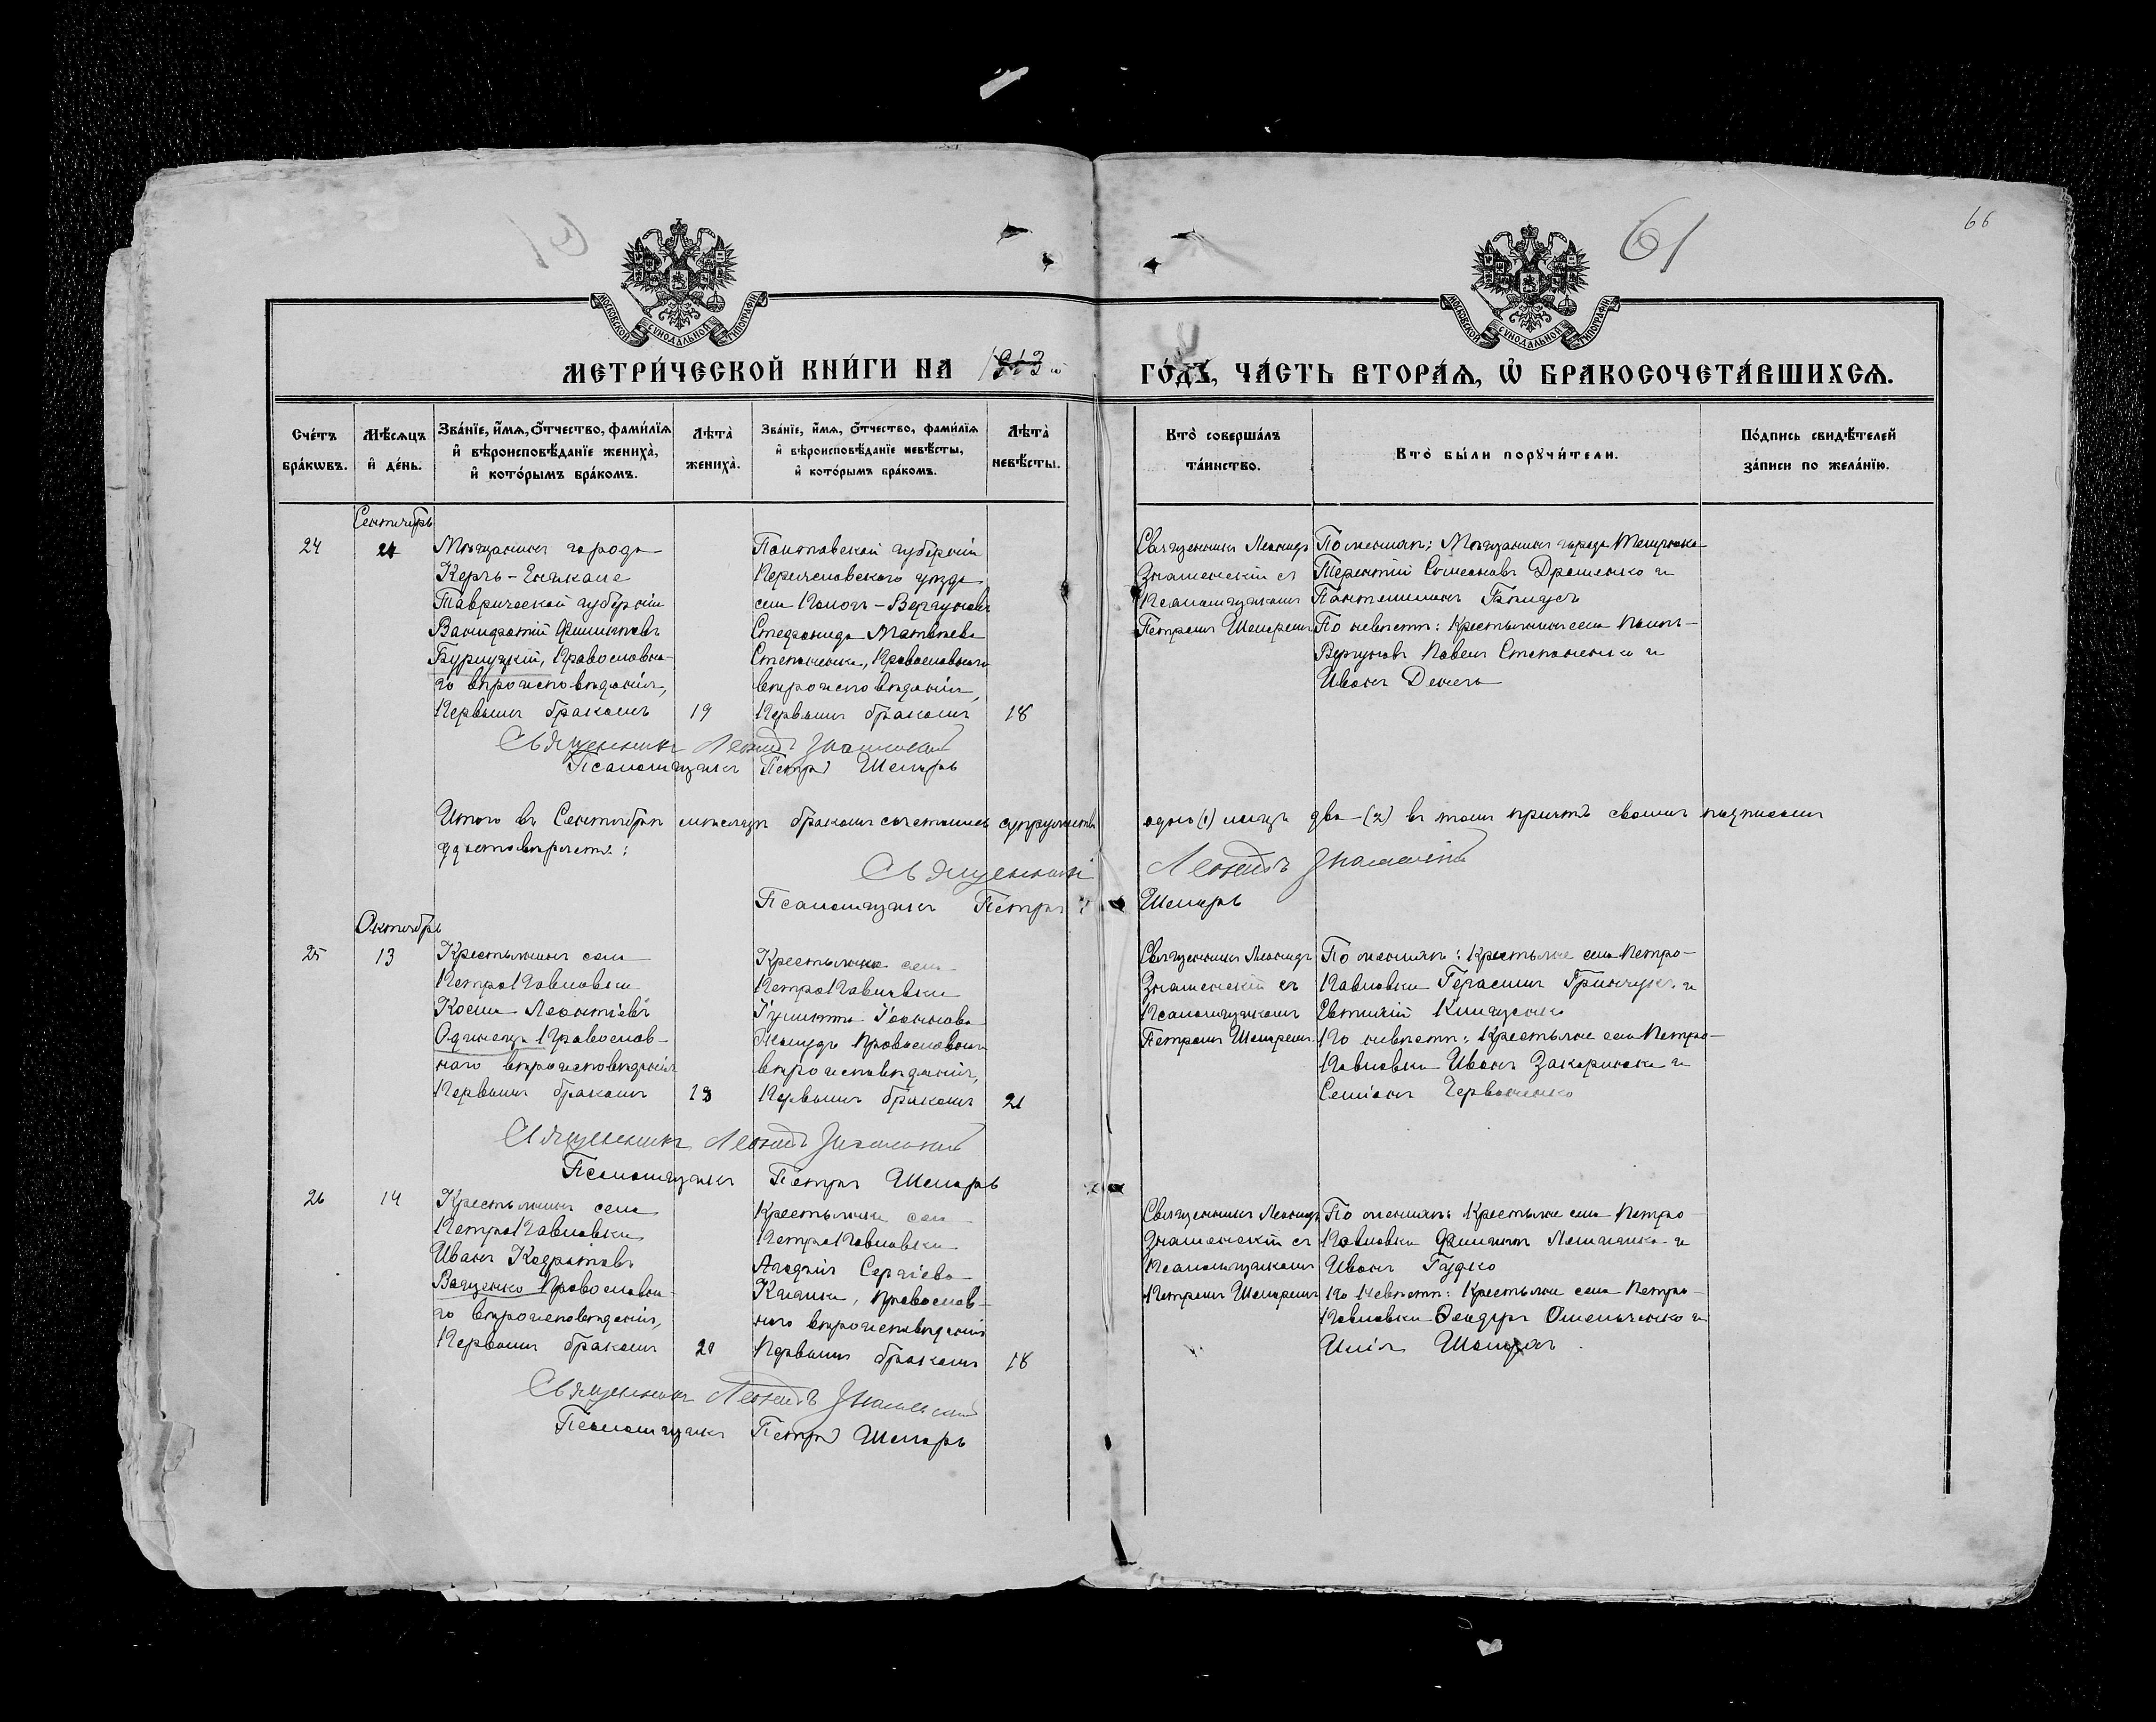 61
66
МОСКОВСКОЙ СѴНОДАЛЬНОЙ ТИПОГРАФІИ
МОСКОВСКОЙ СѴНОДАЛЬНОЙ ТИПОГРАФІИ
МЕТРИ́ЧЕСКОЙ КНИ́ГИ НА 1913 й ГО́ДЪ, ЧА́СТЬ ВТОРА́Я, Ѡ БРАКОСОЧЕТА́ВШИХСЯ.
Сче́тъ
бра́кѡвъ.
Мѣ́сяцъ
и҆ де́нь.
Зва́нїе, и҆́мя, о҆́тчество, фами́лїя
и҆ вѣроисповѣ́данїе жениха̀,
и҆ кото́рымъ бра́комъ.
Лѣта̀
жениха̀.
Зва́нїе, и҆́мя, о҆́тчество, фами́лїя
и҆ вѣроисповѣ́данїе невѣ́сты,
и҆ кото́рымъ бра́комъ.
Лѣта̀
невѣ́сты.
Кто̀ соверша́лъ
та́инство.
Кто̀ бы́ли порꙋчи́тели.
По́дпись свидѣ́телей
за́писи по жела́нїю.
Сентябрь
24
24
Мѣщанинъ города
Керчь-Еникале
Таврической губерніи
Филиповъ
Бурлуцкій, Православна-
го вѣроисповѣданія,
Первымъ бракомъ
19
Полтавской губерніи
Переяславского уѣзда
села Помок-Вергуновъ
Стефанида Матвѣева
Степаненко, Православнаго
вѣроисповѣданія,
Первымъ бракомъ
18
Священникъ Леонидъ
Знаменскій съ
Псаломщикомъ
Петромъ Шепаремъ
По женихѣ: Мѣщанинъ города
Терентій Симеоновъ Дрошенко и
Пантелимонъ
По невѣстѣ: крестьянинъ села
Вергуновъ Павелъ Степаненко и
Иванъ
Священникъ Леонидъ Знаменскій
Псаломщикъ Петръ Шепарь
Итого въ Сентябрѣ мѣсяцѣ бракомъ сочетались супружествъ одно (1) лицъ два (2) въ томъ причтъ своимъ подписомъ
удостовѣряетъ:
Священникъ Леонидъ Знаменскій
Псаломщикъ Петръ Шепарь
Октябрь
25
13
Крестьянинъ села
ПетроПавловки
Косма Леонтіевъ
Одинецъ Православ-
наго вѣроисповѣданія
Первымъ бракомъ
Крестьянка села
ПетроПавловки
Іулитта Іоаннова
Православнаго
вѣроисповѣданія,
Первымъ бракомъ
21
Священникъ Леонидъ
Знаменскій съ
Псаломщикомъ
Петромъ Шепаремъ
По женихѣ: Крестьяне села Петро-
Павловки Герасимъ Гринчукъ и
Евтихій
По невѣстѣ: Крестьяне села Петро-
Павловки Иванъ и
Симіонъ Червоненко
Священникъ Леонидъ Знаменскій
Псаломщикъ Петръ Шепарь
26
14
Крестьянинъ села
ПетроПавловки
Иванъ Кодратовъ
Ващенко Православна-
го вѣроисповѣданія,
Первымъ бракомъ
Крестьянка села
ПетроПавловки
Агафія Сергіева
Православ-
наго вѣроисповѣданія
Первымъ бракомъ
18
Священникъ Леонидъ
Знаменскій съ
Псаломщикомъ
Петромъ Шепаремъ
По женихѣ: Крестьяне села Петро-
Павловки Филиппъ и
Иванъ Гудко
По невѣстѣ: Крестьяне села Петро-
Павловки Ѳеодоръ Омельченко и
Илія
Священникъ Леонидъ Знаменскій
Псаломщикъ Петръ Шепарь